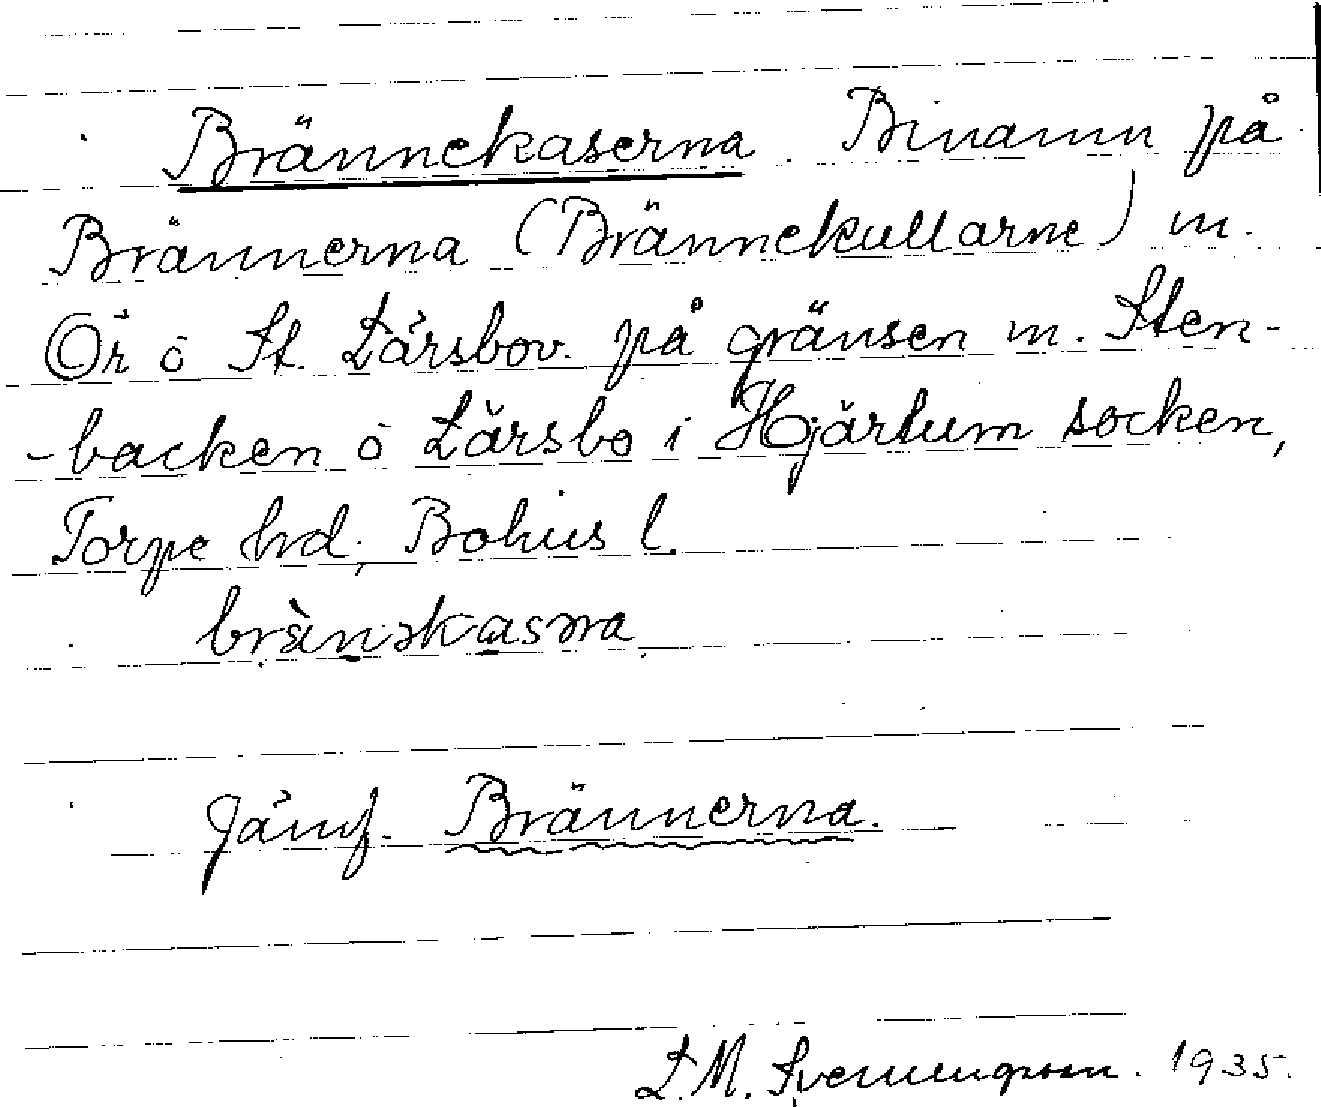 Brännekaserna. Binamn på
Brännerna (Brännekullarne) m.
Ör o St. Lärsbov. på gränsen m. Sten-
-backen o Lärsbo i Hjärtum socken,
Torpe hrd, Bohus l.
Jämf. Brännerna.
L.M. Svenungsson. 1935.